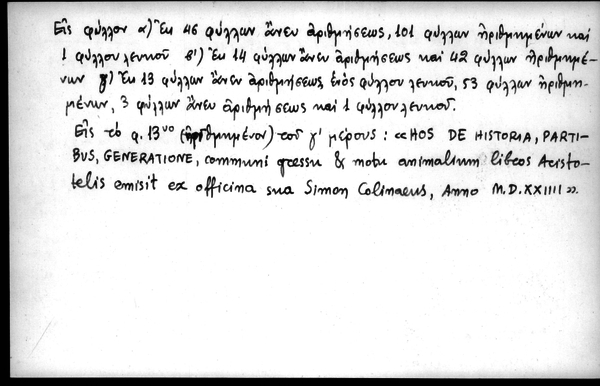 Εἰς φύλλον α) Ἐκ 46 φύλλων ἄνευ ἀριθμήσεως, 101 φύλλων ἠριθμημένων καὶ
1 φύλλου λευκοῦ β') Ἐκ 14 φύλλων ἄνευ ἀριθμήσεως καὶ 42 φύλλων ἠριθμημέ-
νων γ) Ἐκ 13 φύλλων ἄνευ ἀριθμήσεως, ἑνὸς φύλλου λευκοῦ, 53 φύλλων ἠριθμη-
μένων, 3 φύλλων ἄνευ ἀριθμήσεως καὶ 1 φύλλου λευκοῦ.
Εἰς τὸ φ. 13ᵛᵒ (ἠριθμημένον) τοῦ γ' μέρους : «HOS DE HISTORIA, PARTI-
BUS, GENERATIONE, communi gressu & motu animalium libros Aristo-
telis emisit ex officina sua Simon Colinaeus, Anno M.D.XXIIII».